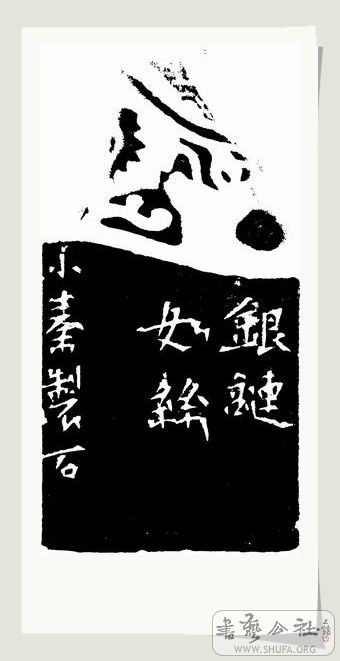 銀鏈
如絲
小秦製石
書藝公社
WWW.SHUFA.ORG